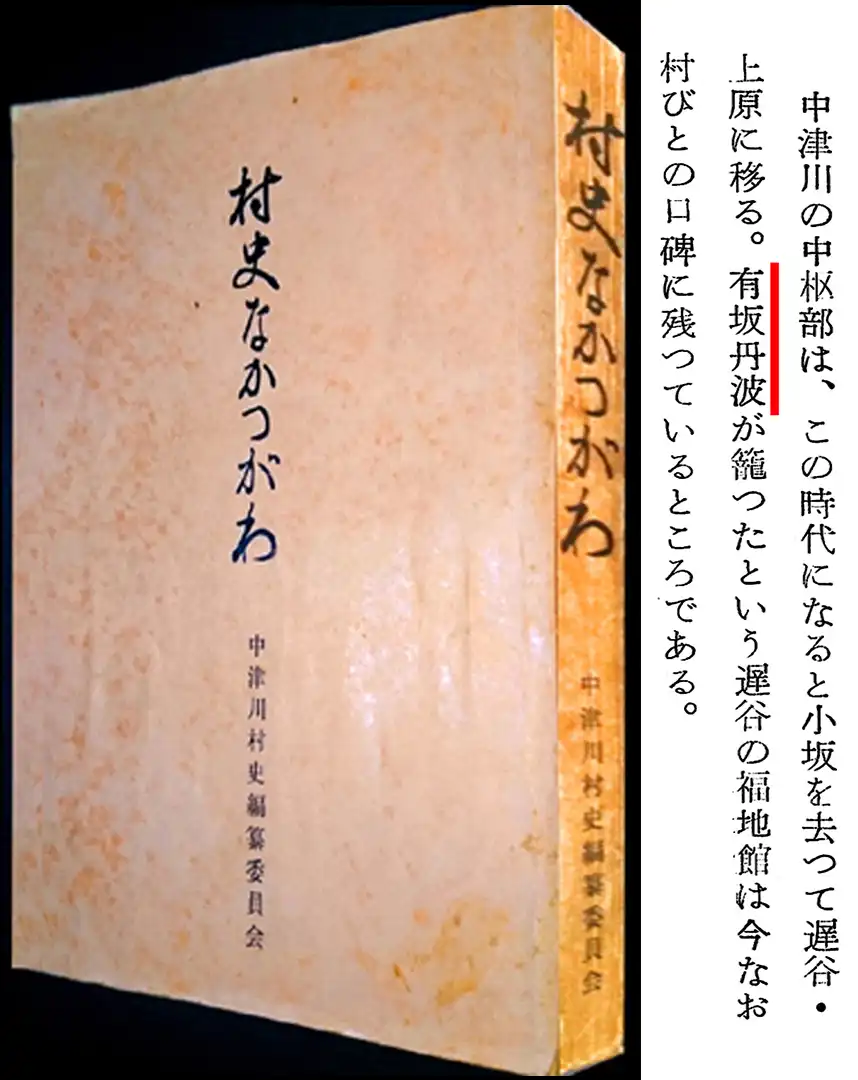 村史なかつがわ
中津川村史編纂委員会
村史なかつがわ
中津川村史編纂委員会
中津川の中枢部は、この時代になると小坂を去つて遅谷・
上原に移る。有坂丹波が籠つたという遅谷の福地館は今なお
村びとの口碑に残つているところである。